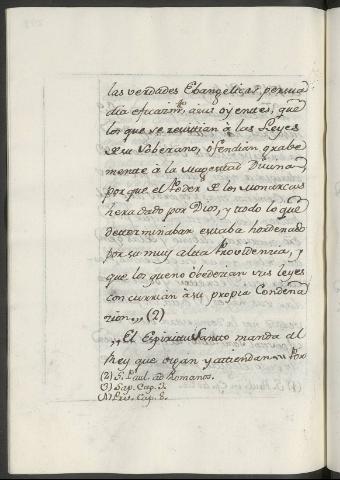 las verdades Ebangelicas persua
dia eficazm.te à sus oyentes, que
los que se resistian à las Leyes
de su Soberano, ofendian grabe
mente à la Magestad Divina
por que el Poder de los Monarcas
hera dado por Dios, y todo lo que
determinaban estaba hordenado
por su muy alta Providencia, y
que los que no obedecian sus leyes
concurrian à su propia Condena
cion,, (2)
,,El Espiritu Santo manda al
Rey que oygan y attiendan Por
(2) S. Paul. ad Romanos.
(3) Sap. Cap. 3.
Prov. Cap. 8.